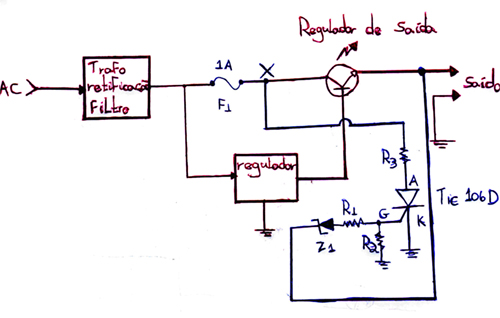 Regulador de saída
AC
Trafo
retificação
filtro
1A
F1
X
Saída
regulador
R3
A
Tic 106D
G
K
R1
R2
Z1